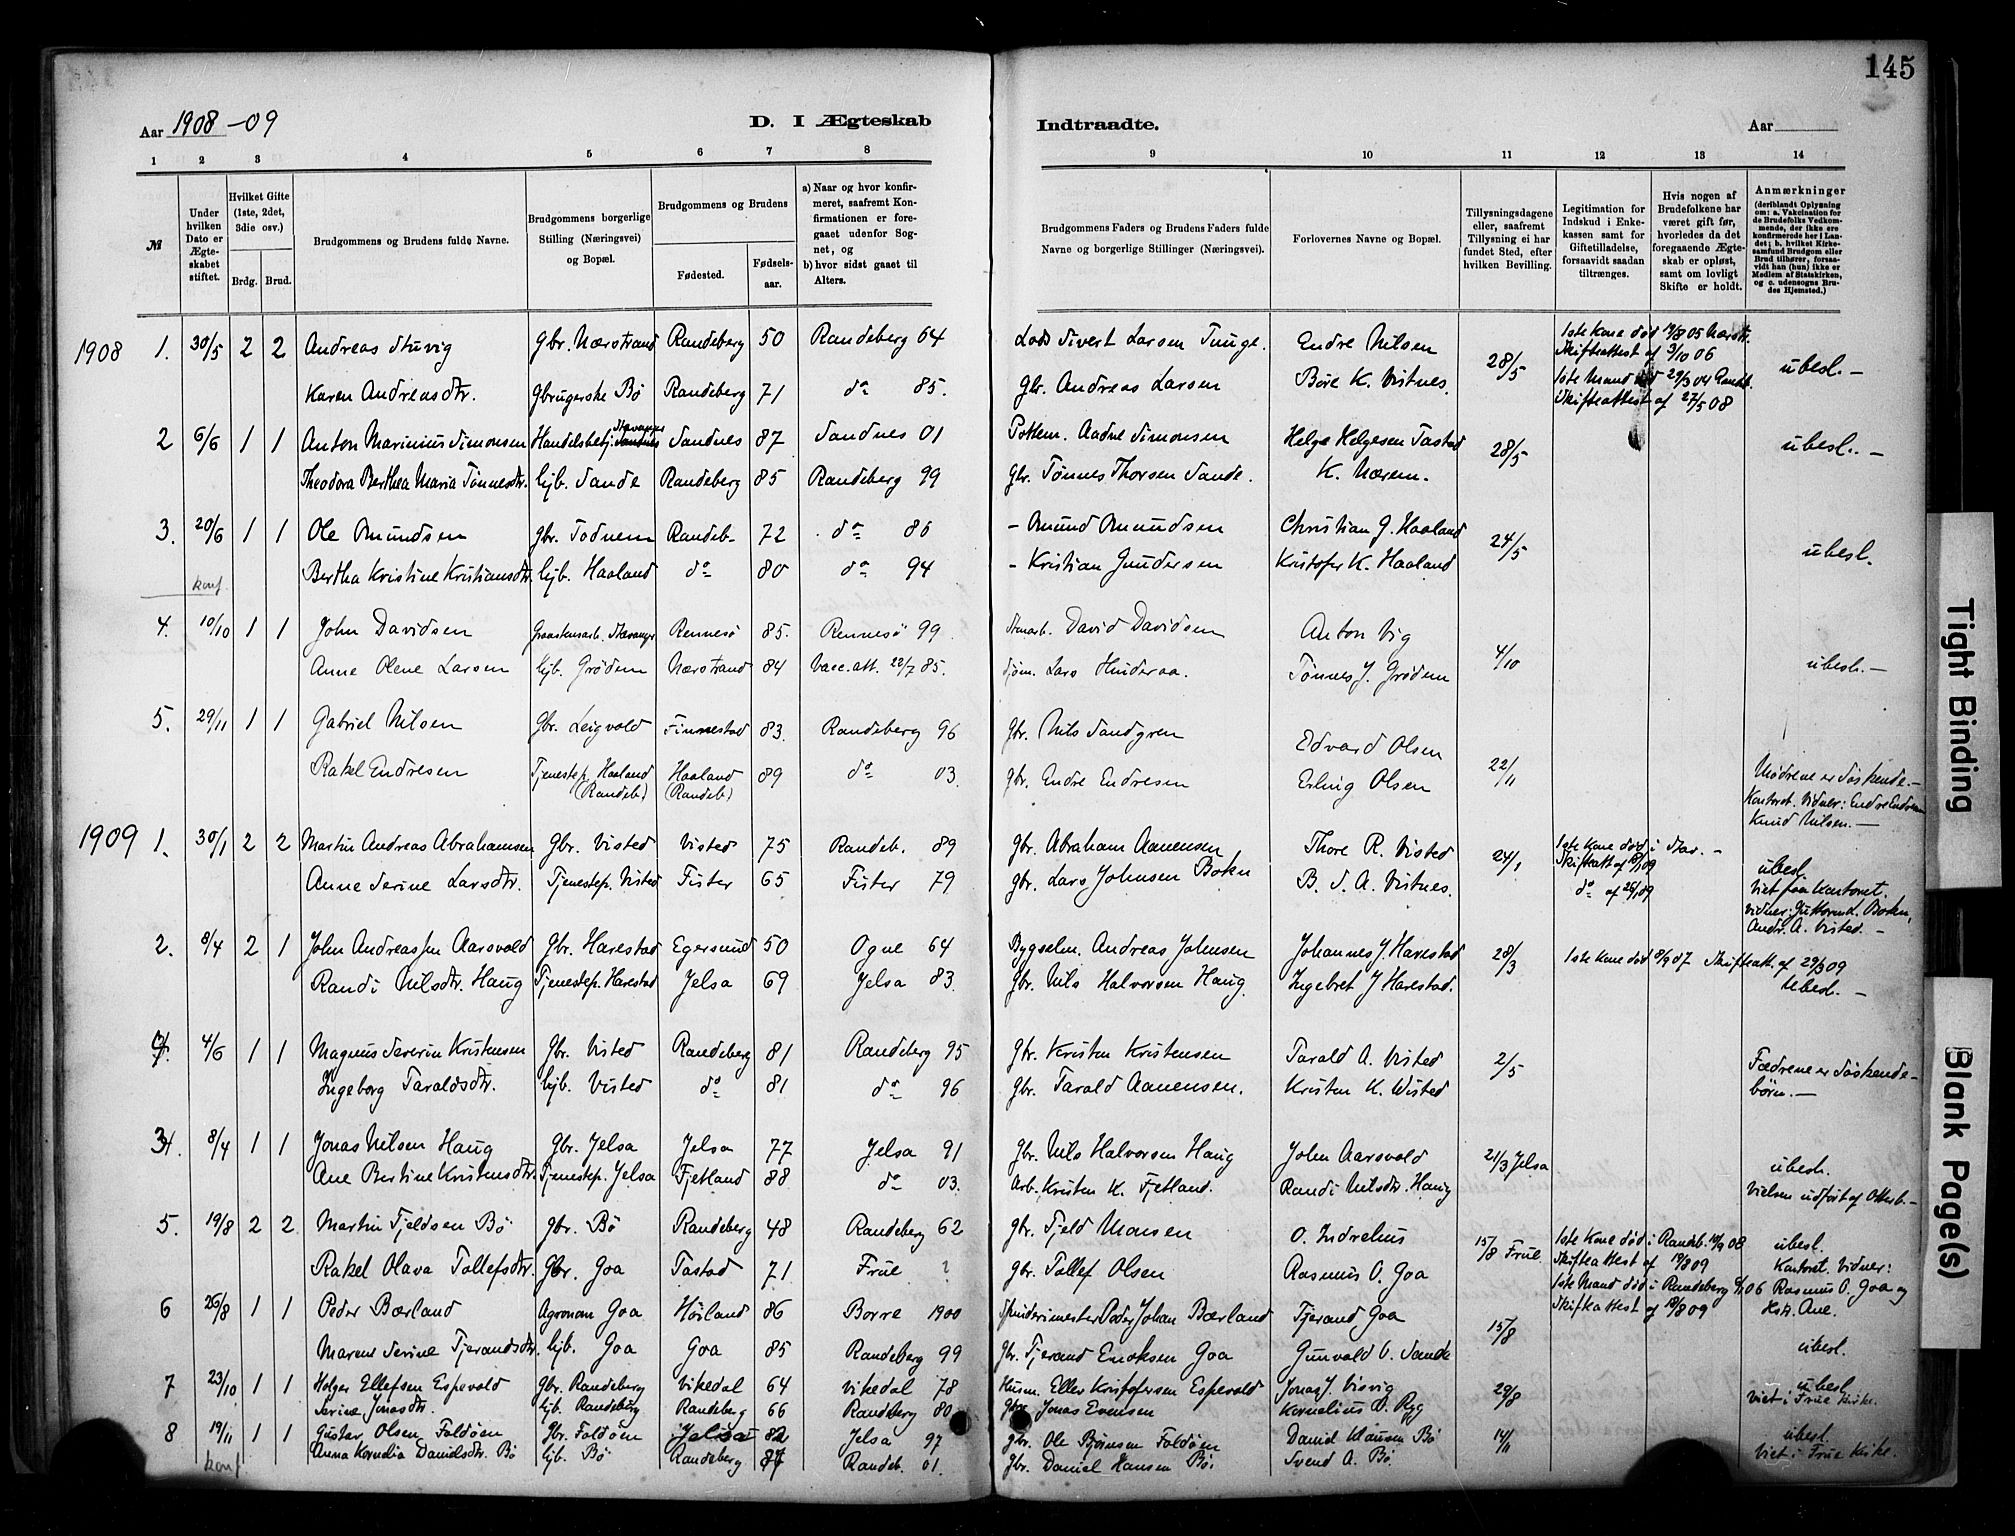 145
Aar 1908-09 D. I Ægteskab Indtraadte. Aar
1 2 3 4 5 6 7 8 9 10 11 12 13 14
№
Under hvilken Dato er Ægteskabet stiftet.
Hvilket Gifte (1ste, 2det, 3die osv.)
Brdg. Brud.
Brudgommens og Brudens fulde Navne.
Brudgommens borgerlige Stilling (Næringsvei) og Bopæl.
Brudgommens og Brudens
Fødested. Fødselsaar.
a) Naar og hvor konfirmeret, saafremt Konfirmationen er foregaaet udenfor Sognet, og
b) hvor sidst gaaet til Alters.
Brudgommens Faders og Brudens Faders fulde Navne og borgerlige Stillinger (Næringsvei).
Forlovernes Navne og Bopæl.
Tillysningsdagene eller, saafremt Tillysning ei har fundet Sted, efter hvilken Bevilling.
Legitimation for Indskud i Enkekassen samt for Giftetilladelse, forsaavidt saadan tiltrænges.
Hvis nogen af Brudefolkene har været gift før, hvorledes da det foregaaende Ægteskab er opløst, samt om lovligt Skifte er holdt.
Anmærkninger (deriblandt Oplysning om: a. Vakcination for de Brudefolks Vedkommende, der ikke ere konfirmerede her i Landet; b. hvilket Kirkesamfund Brudgom eller Brud tilhører, forsaavidt han (hun) ikke er Medlem af Statskirken, og c. udensogns Brudes Hjemsted.)
1908 1. 30/5 2 2 Andreas Stuvig Gbr. Nærstrand Randeberg 50 Randeberg 64 Lods Sivert Larsen Tunge. Endre Nilsen 28/5 1ste Kone død 05 Nærstr. Skifteattest af 3/10 06 ubesl. -
Karen Andreasdtr. Gbrugerske Bø Randeberg 71 do 85. gbr. Andreas Larsen Børe K. Vistnes. 1ste Mand død 29/3 04 Skifteattest af 27/5 08
2 6/6 1 1 Anton Marinius Simonsen Handelsbetj. Stavanger Sandnes 87 Sandnes 01 Pottem. Aadne Simonsen Helge Helgesen Tastad 28/5 ubesl. -
Theodora Berthea Maria Tønnesdtr. hjb. Sande Randeberg 85 Randeberg 99 gbr. Tønnes Thorsen Sande. K. Nærem.
3. 20/6 1 1 Ole Amundsen gbr. Todnem Randeb- 72 do 86 - Amund Amundsen Christian G. Haaland 24/5 ubesl.
konf Bertha Kristine Kristiansdtr. hjb. Haaland do 80 do 94 - Kristian Gundersen Kristofer K. Haaland
4. 10/10 1 1 John Davidsen Graastensarb. Stavanger Rennesø 85. Rennesö 99 Stenarb. David Davidsen Anton Vig 4/10 ubesl. -
Anne Olene Larsen hjb. Grødem Nærstrand 84 Vacc.att. 22/7 85. Sjøm. Lars Hinderaa. Tønnes J. Grødem
5. 29/11 1 1 Gabriel Nilsen Gbr. Leigvold Finnestad 83. Randeberg 96 gbr. Nils Sandgren Edvard Olsen 22/11
Rakel Endresen Tjenestep. Haaland (Randeb.) Haaland (Randeb.) 89 do 03. gbr. Endre Endresen Erling Olsen Mødrene er Søskende. - Kontoret. Vidner: Endre Endresen Knud Nilsen. -
1909 1. 30/1 2 2 Martin Andreas Abrahamsen gbr. Visted Visted 75 Randeb. 89 gbr. Abraham Aanensen Thore R. Visted 24/1 1ste Kone død i Stav. - Skifteatt af 09 ubesl.
Anne Serine Larsdtr. Tjenestep. Visted Fister 65 Fister 79 gbr. Lars Johnsen Bokn B. S. A. Vistnes. do af 25/1 09 Viet paa Kontoret. Vidner: Guttorm L. Bokn, Andr. A. Visted. -
2. 8/4 2 1 John Andreassen Aarsvold Gbr. Harestad Egersund 50 Ogne 64 Bygselm. Andreas Johnsen Johannes J. Harestad 28/3 1ste Kone død 8/9 07 Skifteatt. af 29/3 09
Randi Nilsdtr. Haug Tjenestep. Harestad Jelsa 69 Jelsa 83. Gbr. Nils Halvorsen Haug Ingebret J Harestad. Ubesl. -
4/6 1 1 Magnus Severin Kristensen Gbr. Visted Randeberg 81 Randeberg 95 gbr. Kristen Kristensen Tarald A. Visted 2/5 Fædrene er Søskendebørn. -
Ingeborg Taraldsdtr. hjb. Visted do 81 do 96 gbr. Tarald Aanensen. Kristen K. Wisted
8/4 1 1 Jonas Nilsen Haug Gbr. Jelsa Jelsa 77 Jelsa 91 gbr. Nils Halvorsen Haug John Aarsvold 21/3 Jelsa ubesl.
Ane Bertine Kristensdtr. Tjenestep. Jelsa Fjetland 88 do 03. Arb. Kristen K. Fjetland. Randi Nilsdtr. Haug Vielsen udført af Ottesb. -
5. 19/8 2 2 Martin Tjeldsen Bø gbr. Bø Randeberg 48 Randeberg 62 gbr. Tjeld Monsen O. Indrehus 15/8 Frue 1ste Kone død i Randeb. 08 Skifteattest af 09 ubesl.
Rakel Olava Tollefsdtr. Gbr. Goa Tastad 71 Frue ? gbr. Tollef Olsen Rasmus O. Goa 1ste Mand død i Randeberg 06 Skifteattest af 18/8 09 Kontoret. Vidner: Rasmus O. Goa og Hstr. Ane.
6 26/8 1 1 Peder Bærland Agronom Goa Høiland 86 Borre 1900 Spinderimester Peder Johan Bærland Tjerand Goa 15/8
Maren Serine Tjerandsdtr. hjb. Goa Goa 85 Randeberg 99 gbr. Tjerand Eriksen Goa Gunvald O. Sande ubesl.
7 23/10 1 1 Holger Ellefsen Espevold Gbr. Randeberg Vikedal 64 Vikedal 78 Husm. Ellev Kristofersen Espevold Jonas J. Visvig 29/8 ubesl.
Serine Jonasdtr. hjb. Randeberg Randeberg 66 Randeberg 80 gbr. Jonas Evensen Kornelius O. Ryg Viet i Frue Kirke.
8 19/11 1 1 Gustav Olsen Foldøen Gbr. Foldøen Jelsa 82 Jelsa 97 gbr. Ole Bjørnsen Foldøen Daniel Hansen Bø 14/11 ubesl.
konf Anna Kornelia Danielsdtr. Bø hjb. Bø Randeberg 87 Randeb. 01. gbr. Daniel Hansen Bø. Svend A. Bø. Viet i Frue Kirke.
Tight Binding
Blank Page(s)